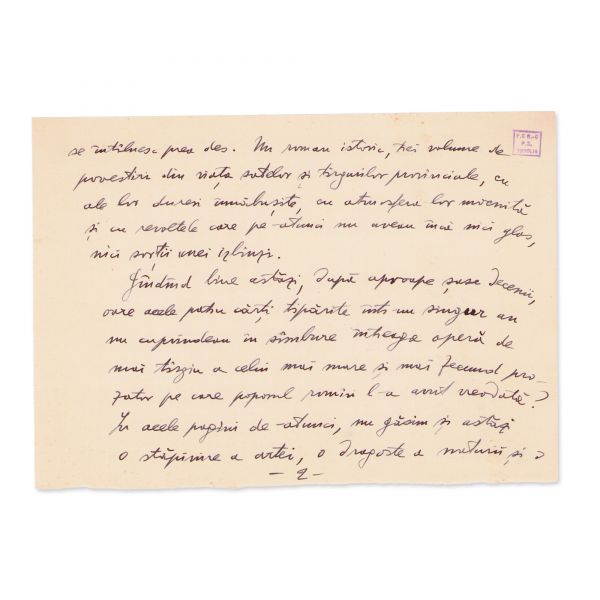 P.C.R.-C
P.S.
se întâlnesc prea des. Un roman istoric, trei volume de
povestiri din viața satelor și tîrgurilor provinciale, cu
ale lor dureri înnăbușite, cu atmosfera lor mocnită
și cu revoltele care pe-atunci nu aveau încă nici glas,
nici sorții unei izbînzi.
Gîndind bine astăzi, după aproape șase decenii,
oare acele patru cărți tipărite într-un singur an
nu cuprindeau în sîmbure întreaga operă de
mai tîrziu a celui mai mare și mai fecund pro-
zator pe care poporul romîn l-a avut vreodată?
In acele pagini de-atunci, nu găsim și astăzi
o stăpînire a artei, o dragoste a naturii și o
- 2 -